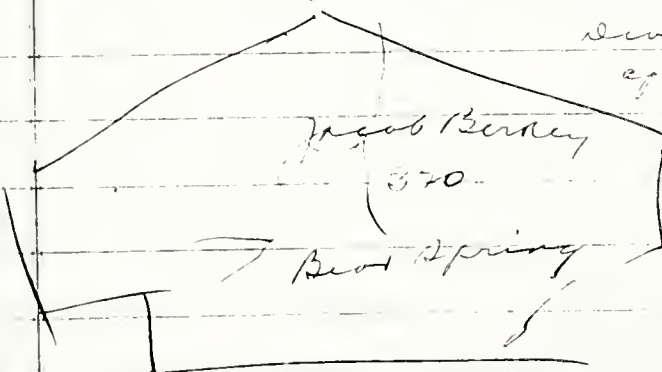 Jacob Berkey
370
Bear Spring